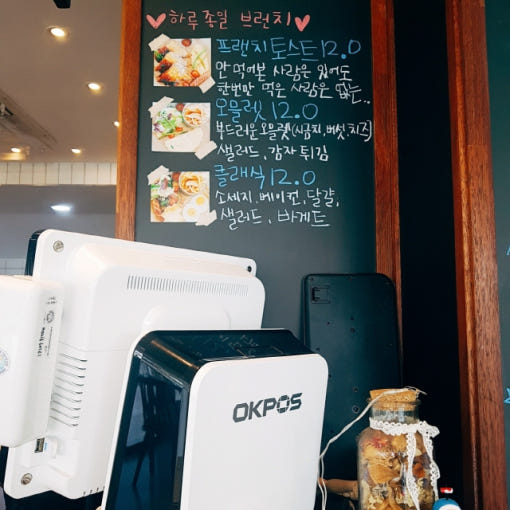 ♥하루종일 브런치♥
프랜치토스트 12.0
안 먹어본 사람은 있어도
한번만 먹은 사람은 없는..
오믈렛 12.0
부드러운 오믈렛(시금치,버섯,치즈)
샐러드, 감자튀김
클래식 12.0
소세지, 베이컨, 달걀,
샐러드, 바게트
OKPOS